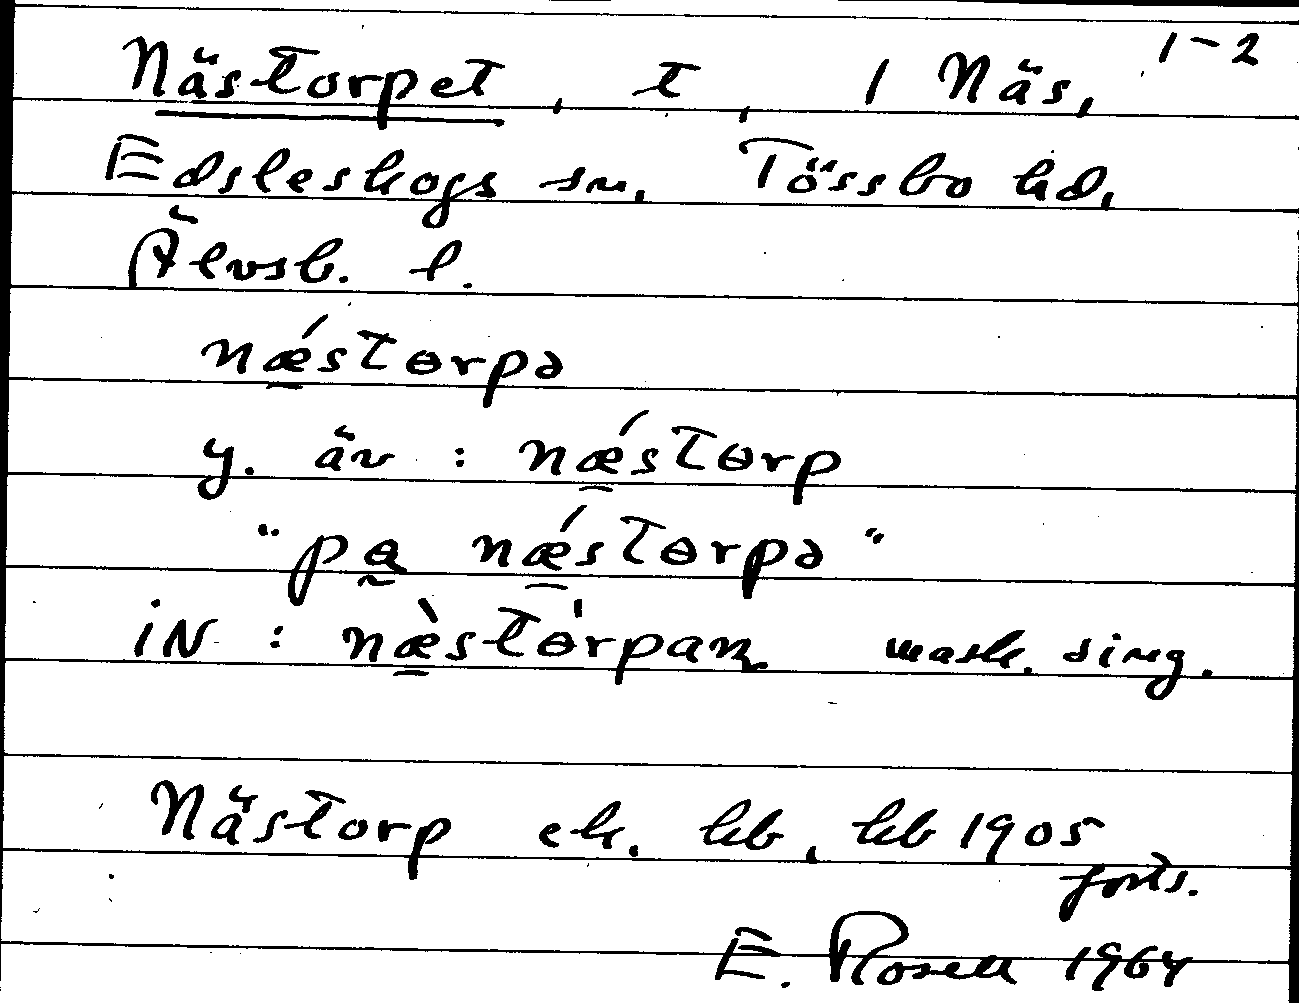 1-2
Nästorpet, t, 1 Näs,
Edsleskogs sn. Tössbo hd,
Älvsb. l.
nǽ̲stɵrpə
y. äv: nǽ̲stɵrp
"pɵ̰ nǽ̲stɵrpə"
iN: næ̲̀stɵ̍rpan mask. sing.
Nästorp ek. kb, kb 1905
forts.
E. Rosell 1964